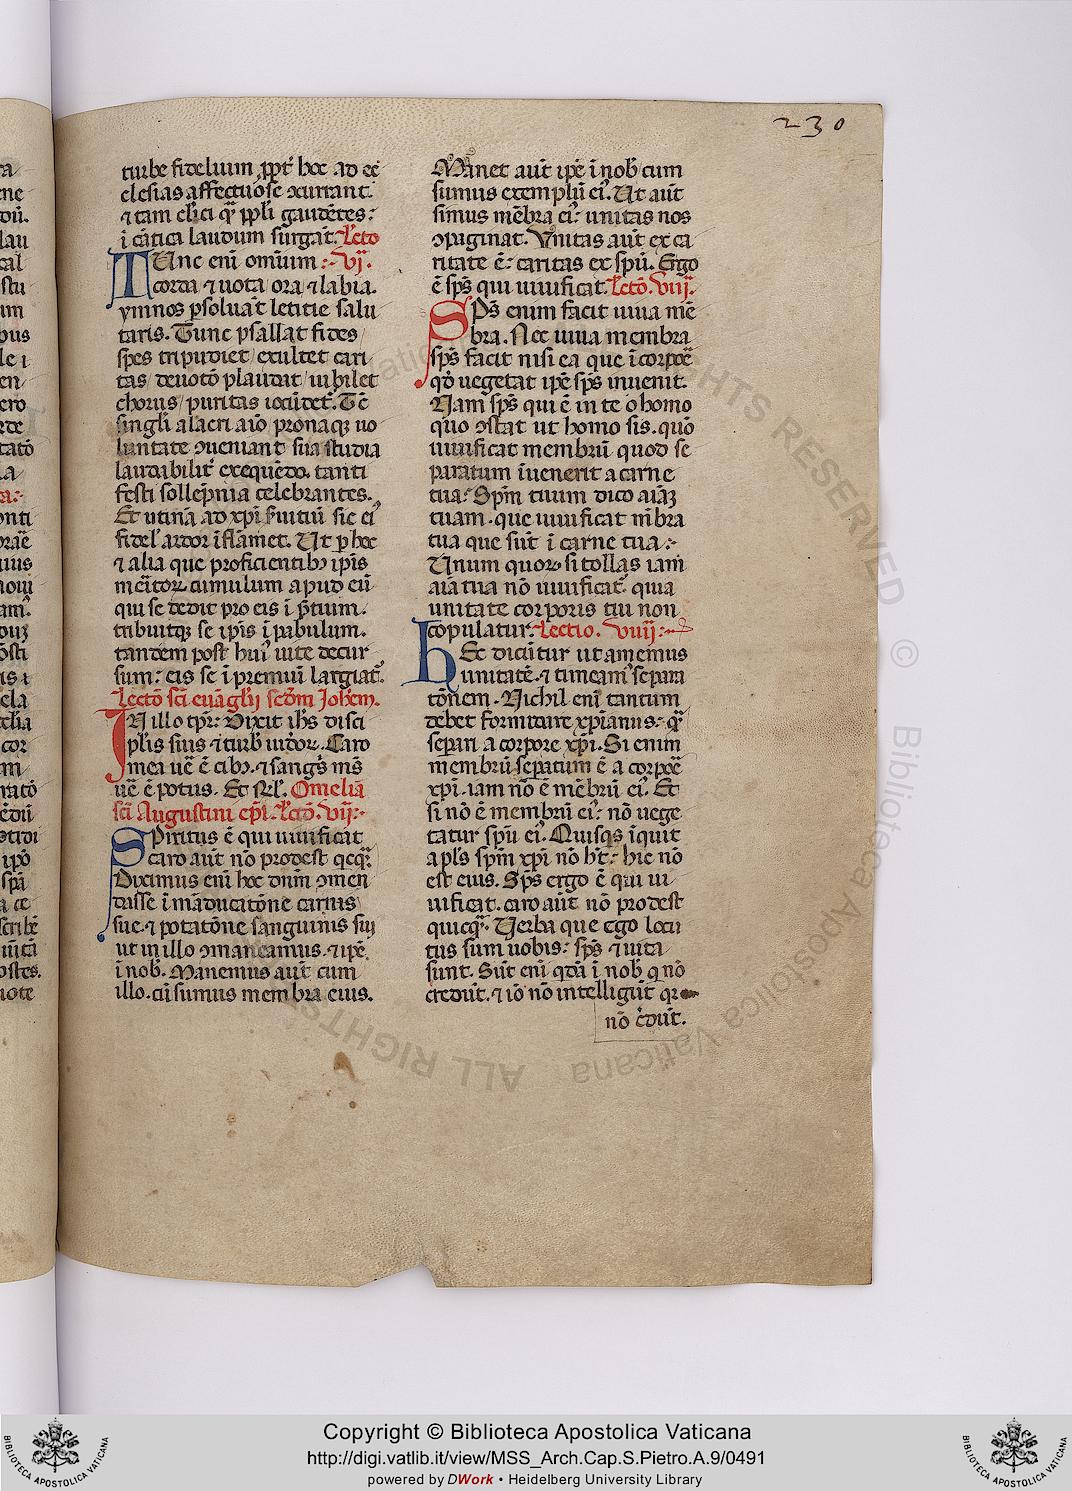 230
turbe fidelium ꝓpt̄ hoc ad ec
clesias affectuose ꝯcurrant.
⁊ tam cl̓ici qͣ ppl̓i gaudētes:
ī cātica laudum surgāt. Lect̄o
TUnc enī omium :· vj.
corda ⁊ uota ora ⁊ labia.
ymnos ꝑsoluāt letitie salu
taris. Tunc psallat fides/
spes tripudiet/ exultet cari
tas/ deuotō plaudat/ iubilet
chorus/ puritas iocūdet. Tc̄
singl̓i alacri aīo pronaqꝫ uo
luntate ꝯueniant sua studia
laudabilit̓ exequēdo. tanti
festi sollēpnia celebrantes.
Et utinā ad xp̄i s̓uitiū sic ei᷒
fidel̓ ardor īflāmet. Ut ꝑ hoc
⁊ alia que proficientibꝫ ip̄is
mēitoꝝ cumulum apud eū
qui se dedit pro eis ī p̄tium.
tribuitqꝫ se ip̄is ī pabulum.
tandem post hui᷒ uite decur
sum: eis se ī premiū largiat̓.
Lectō scī euāgl̓ii secd̄m Joh̄em.
IN illo tp̄r: Dixit ih̄s disci
pl̓is suis ⁊ turb̓ iudeoꝝ. Caro
mea uē ē cibꝫ. ⁊ sangs̓ m̄s
uē ē potus. Et rl̓. Omelia
scī Augustini ep̄i. Lectō. vij:·
SPiritus ē qui uiuificat
caro aūt nō prodest qcqͣ.
Diximus enī hoc dnm̄ ꝯmen
dasse ī māducatōne carnis
sue. ⁊ potatōne sanguinis sui
ut in illo ꝯmaneamus. ⁊ ip̄e
ī nob̓. Manemus aūt cum
illo. cū sumus membra eius.
Manet aūt ip̄e ī nob̓ cum
sumus templū ei᷒. Ut aūt
simus mēbra ei᷒: unitas nos
ꝯpaginat. Vnitas aūt ex ca
ritate ē: caritas ex sp̄u. Ergo
ē sp̄s qui uiuificat. Lectō. viij.
SPs̄ enim facit uiua mē
bra. Nec uiua membra
sp̄s facit nisi ea que ī corpoē
qd̓ uegetat ip̄e sp̄s inuenit.
Nam sp̄s qui ē in te o homo
quo ꝯstat ut homo sis. quō
uiuificat membrū quod se
paratum īuenerit a carne
tua: Sp̄m tuum dico aīaꝫ
tuam. que uiuificat m̄bra
tua que sūt ī carne tua:·
Unum quoꝝ si tollas iam
aīa tua nō uiuificat̓. quia
unitate corporis tui non
copulatur. Lectio. viiij:·
hEc dicūtur ut amemus
unitatē. ⁊ timeam᷒ separa
tōnem. Nichil enī tantum
debet formidare xp̄ianus: qͣ
separi a corpore xp̄i. Si enim
membrū sepatum ē a corpoē
xp̄i. iam nō ē mēbrū ei᷒. Et
si nō ē membrū ei᷒: nō uege
tatur sp̄u ei᷒. Quisqs īquit
apl̓s sp̄m xp̄i nō h̓t: hic nō
est eius. Sp̄s ergo ē qui ui
uificat. caro aūt nō prodest
quicqͣ. Uerba que ego locu
tus sum uobis: sp̄s ⁊ uita
sunt. Sūt enī qdā ī nob̓ q nō
credūt. ⁊ iō nō intelligūt qr
nō c̄dūt.
ALL RIGHTS RESERVED © Biblioteca Apostolica Vaticana
Copyright © Biblioteca Apostolica Vaticana
http://digi.vatlib.it/view/MSS_Arch.Cap.S.Pietro.A.9/0491
powered by DWork • Heidelberg University Library
BIBLIOTECA APOSTOLICA VATICANA
BIBLIOTECA APOSTOLICA VATICANA